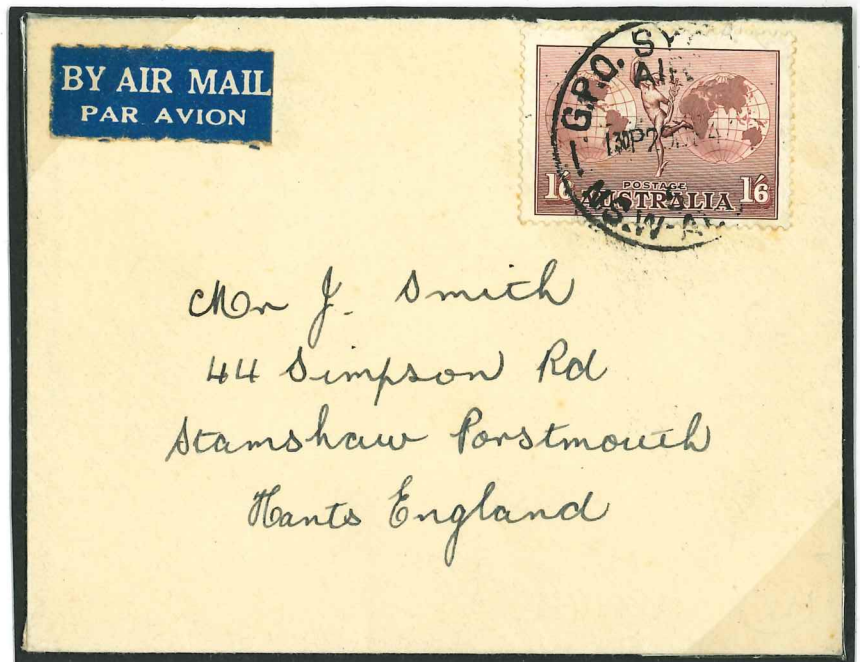 BY AIR MAIL
PAR AVION
G.P.O.
POSTAGE
1'6 AUSTRALIA 1'6
N.S.W-
Mr J. Smith
44 Simpson Rd
Stamshaw Porstmouth
Hants England